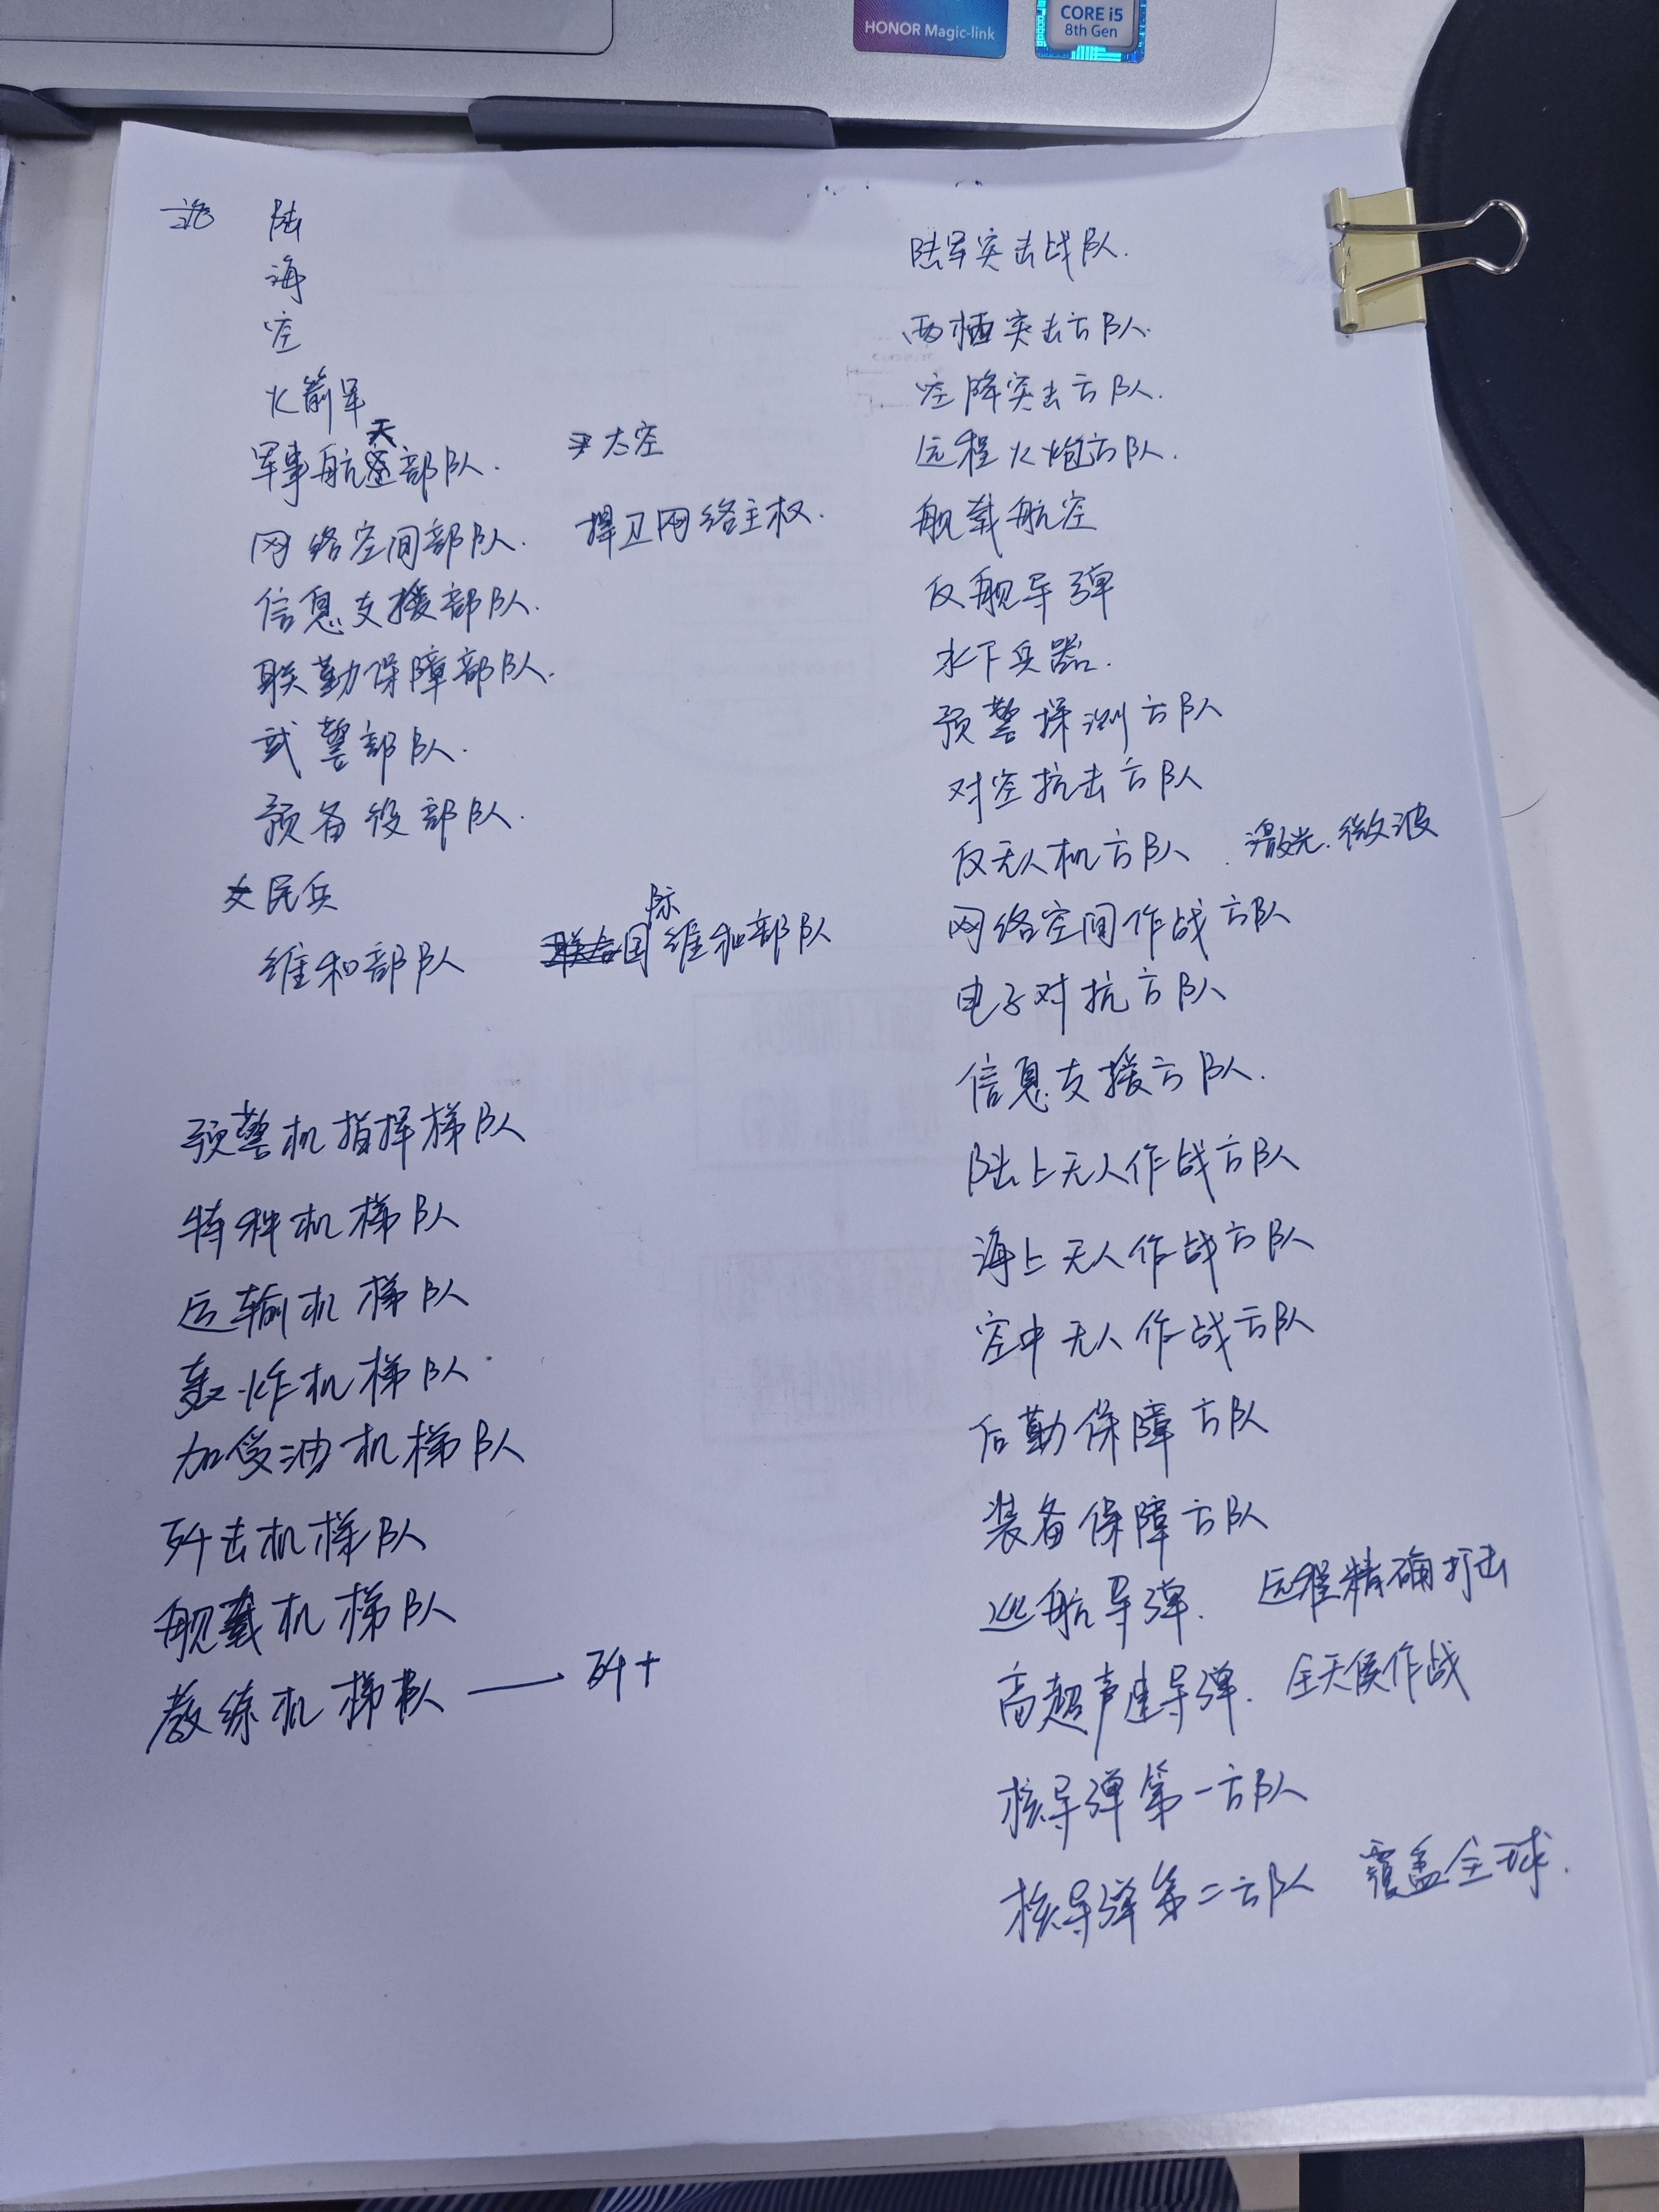 HONOR Magic-link
CORE i5
8th Gen
陆
海
空
火箭军
军事航天部队.
太空
网络空间部队.
捍卫网络主权.
信息支援部队.
联勤保障部队.
武警部队.
预备役部队.
民兵
维和部队
国际维和部队
预警机指挥梯队
特种机梯队
运输机梯队
轰炸机梯队
加受油机梯队
歼击机梯队
舰载机梯队
教练机梯队 → 歼十
陆军突击战队.
两栖突击方队.
空降突击方队.
远程火炮方队.
舰载航空
反舰导弹
水下兵器.
预警探测方队
对空抗击方队
反无人机方队. 激光.微波
网络空间作战方队
电子对抗方队
信息支援方队.
陆上无人作战方队
海上无人作战方队
空中无人作战方队
后勤保障方队
装备保障方队
巡航导弹. 远程精确打击
高超声速导弹. 全天候作战
核导弹第一方队
核导弹第二方队 覆盖全球.